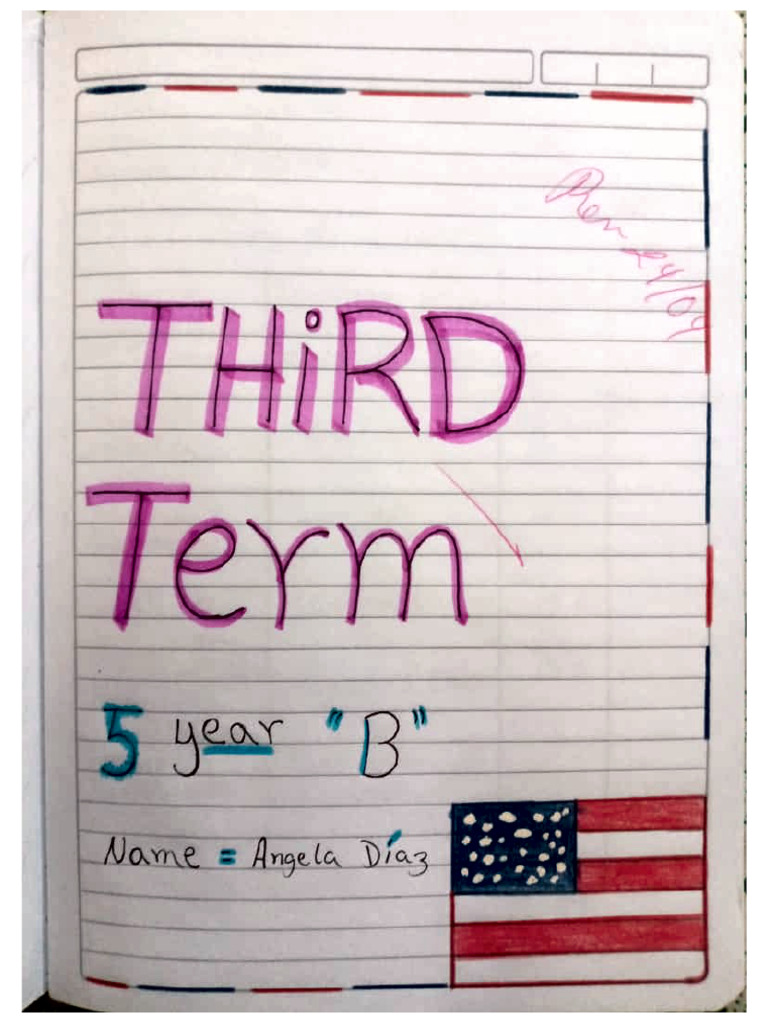 THiRD
Term
5 year "B"
Name = Angela Díaz
24/04